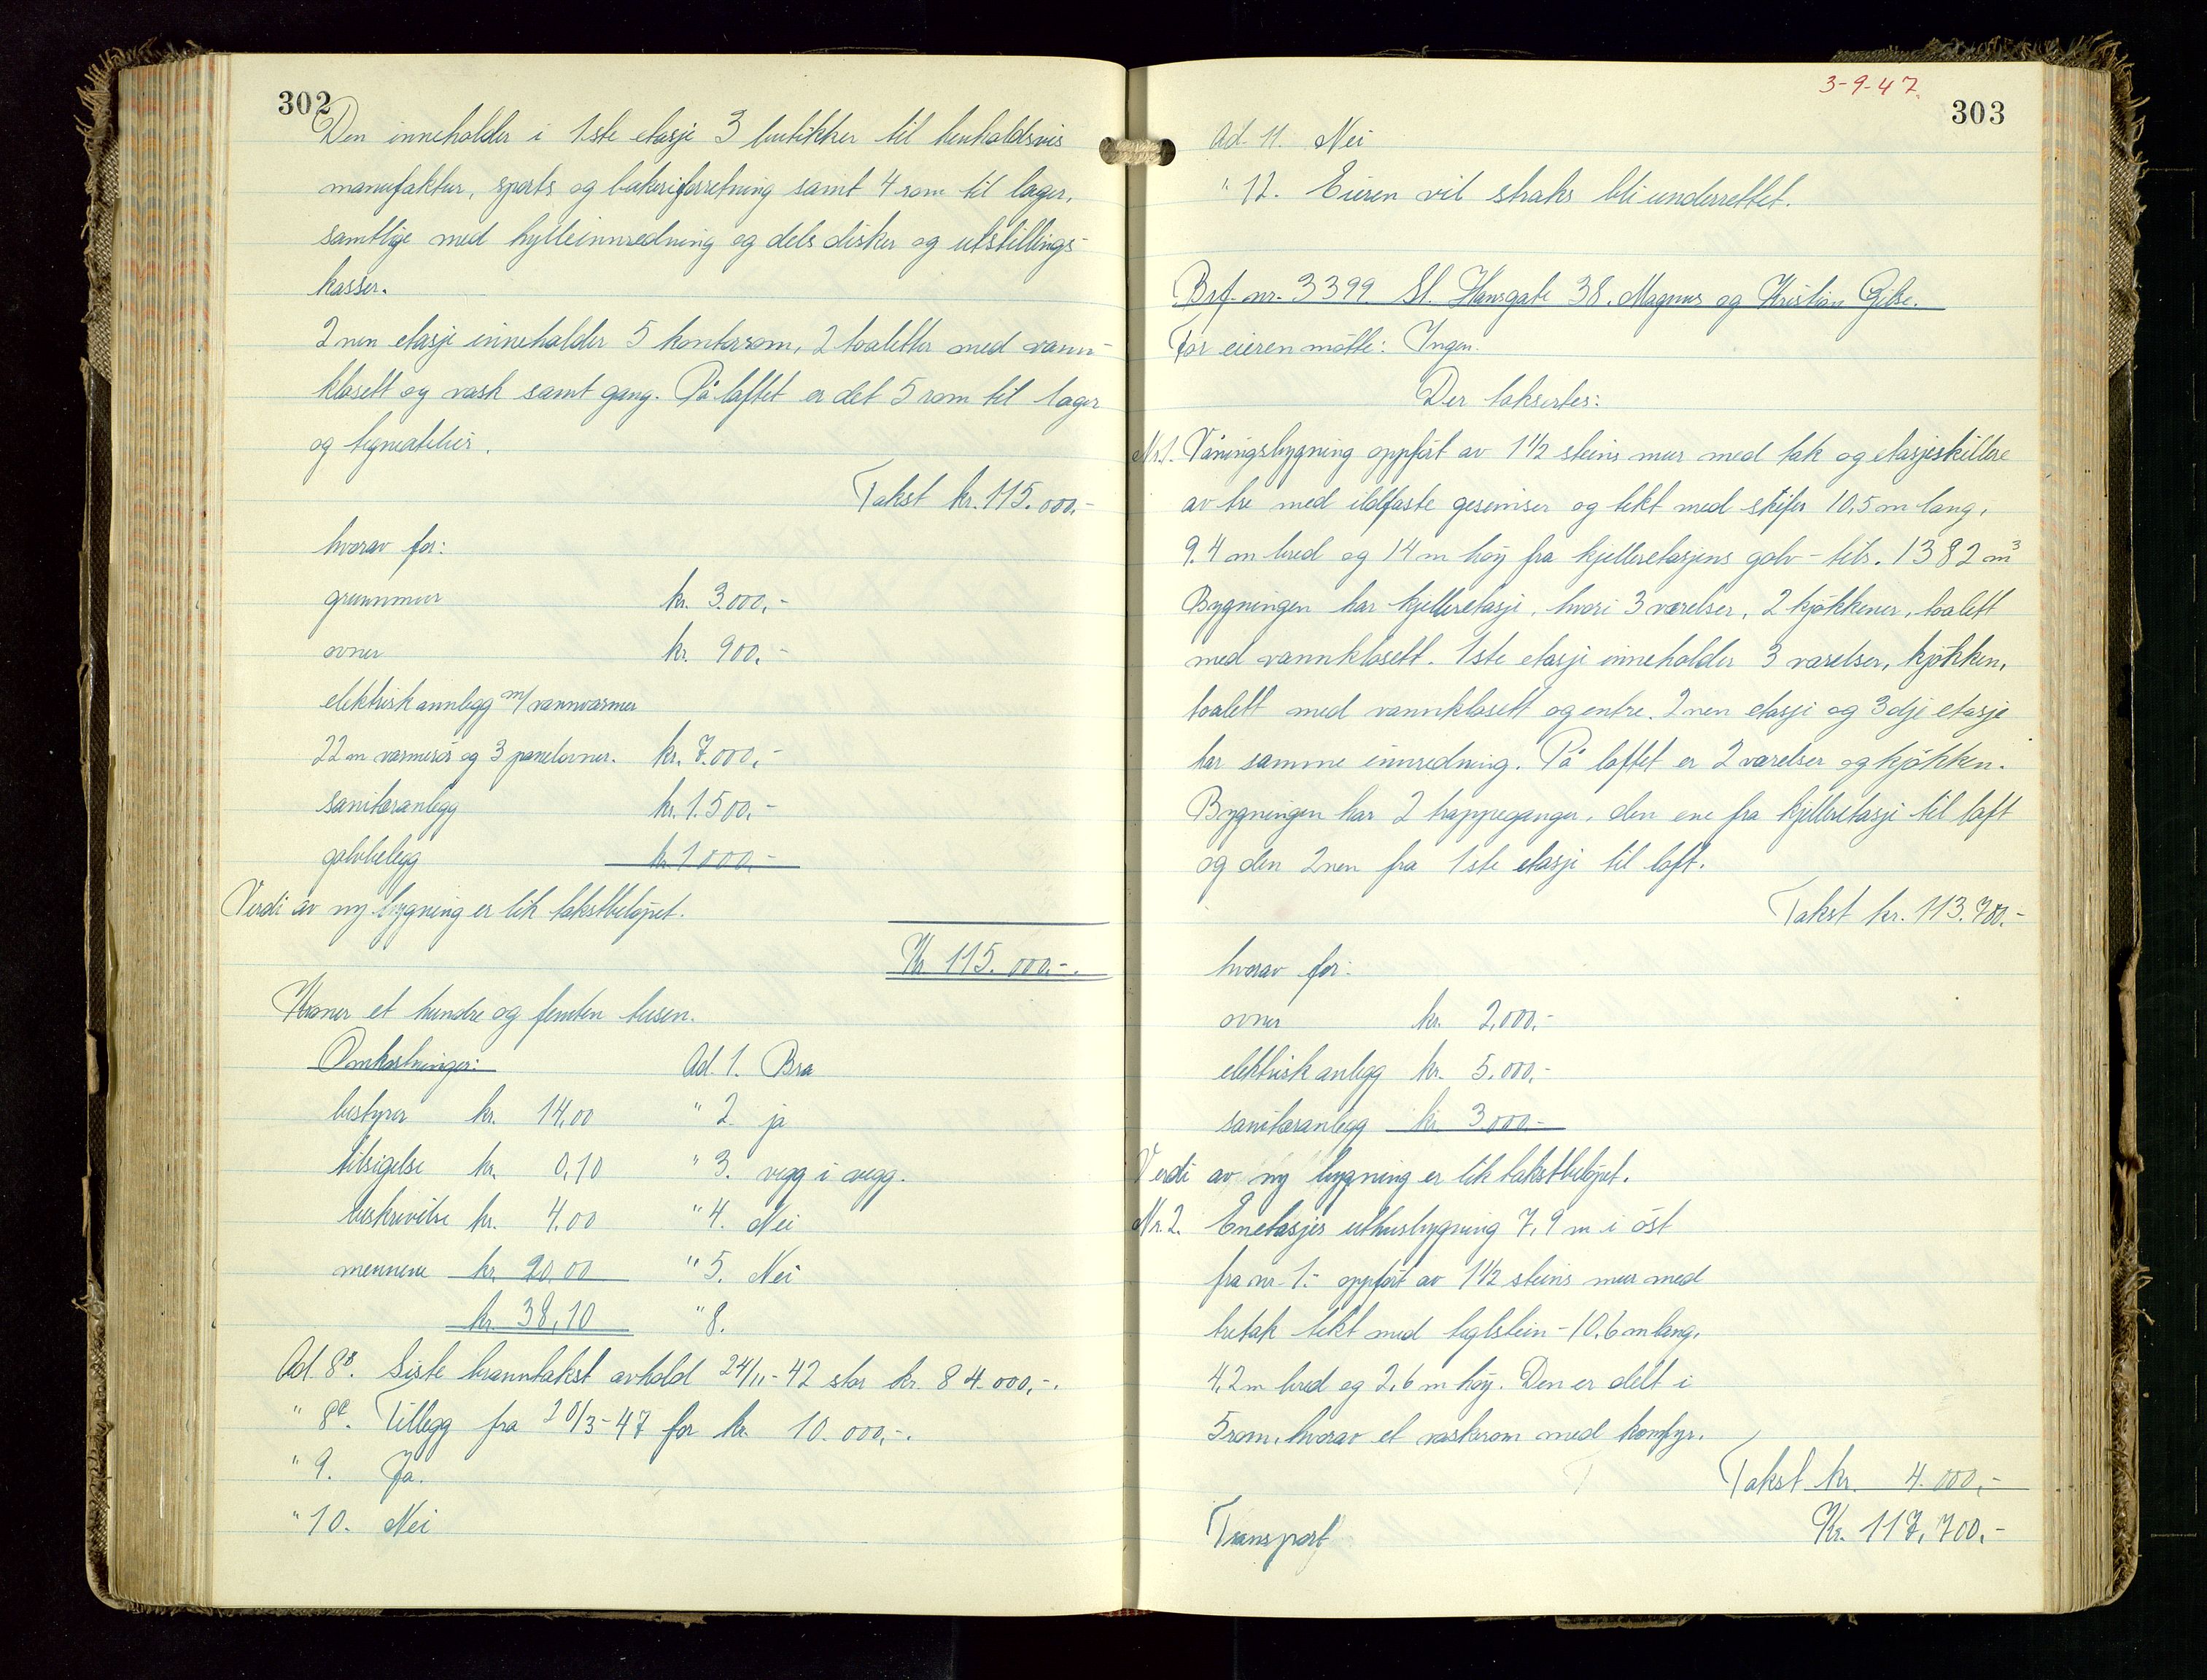 302
Den inneholder i 1ste etasje 3 butikker til henholdsvis
manufaktur, sports og bakeriforretning samt 4 rom til lager,
samtlige med hylleinnredning og dels disker og utstillings-
kasser.
2nen etasje inneholder 5 kontorrom, 2 toaletter med vann-
klosett og vask samt gang. På loftet er det 5 rom til lager
og systuer.
Takst kr. 115.000,-
hvorav for:
grunnmur kr. 3.000,-
ovner kr. 900,-
elektrisk annlegg m/ vannvarmer
22 m varmerör og 3 panelovner. kr. 7.000,-
sanitæranlegg kr. 1.500,-
golvbelegg kr 1000,-
Verdi av ny bygning er lik takstbelöpet.
Kr 115.000,-.
Kroner et hundre og femten tusen.
Omkostninger: Ad. 1. Bra
bestyrer kr. 14,00 " 2. ja
tilsigelse kr. 0,10 " 3. vegg i vegg.
beskrivelse kr. 4.00 " 4. Nei
mennene kr. 20.00 " 5. Nei
kr. 38,10 " 8.
Ad. 8B. Siste branntakst avhold 24/11-42 stor kr. 84.000,-.
" 8C. Tillegg fra 20/3-47 for kr. 10.000,-.
" 9. Ja.
" 10. Nei
3-9-47.
303
Ad. 11. Nei
" 12. Eieren vil straks bli underrettet.
Brf. nr. 3399 St. Hansgate 38. Magnus og Kristian Gilse.
For eieren mötte: Ingen.
Der taksertes:
Nr. 1. Våningsbygning oppfört av 1 1/2 steins mur med tak og etasjeskillere
av tre med ildfaste gesimser og tekt med skifer 10,5 m lang,
9.4 m bred og 14 m höy fra kjelleretasjens golv - tils. 1382 m3
Bygningen har kjelleretasje, hvori 3 værelser, 2 kjökkener, toalett
med vannklosett. 1ste etasje inneholder 3 værelser, kjökken,
toalett med vannklosett og entre. 2nen etasje og 3dje etasje
har samme innredning. På loftet er 2 værelser og kjökken.
Bygningen har 2 trappeganger, den ene fra kjelleretasje til loft
og den 2nen fra 1ste etasje til loft.
Takst kr. 113.700.-
hvorav for:
ovner kr. 2,000,-
elektrisk anlegg kr. 5.000,-
sanitæranlegg kr. 3.000,-
Verdi av ny bygning er lik takstbelöpet.
Nr. 2. Enetasjes uthusbygning 7,9 m i öst
fra nr. 1.- oppfört av 1 1/2 steins mur med
tretak tekt med teglstein - 10,6 m lang,
4,2 m bred og 2,6 m höy. Den er delt i
5 rom, hvorav et vaskerom med komfyr.
Takst kr. 4.000,-
Transport Kr. 117,700,-